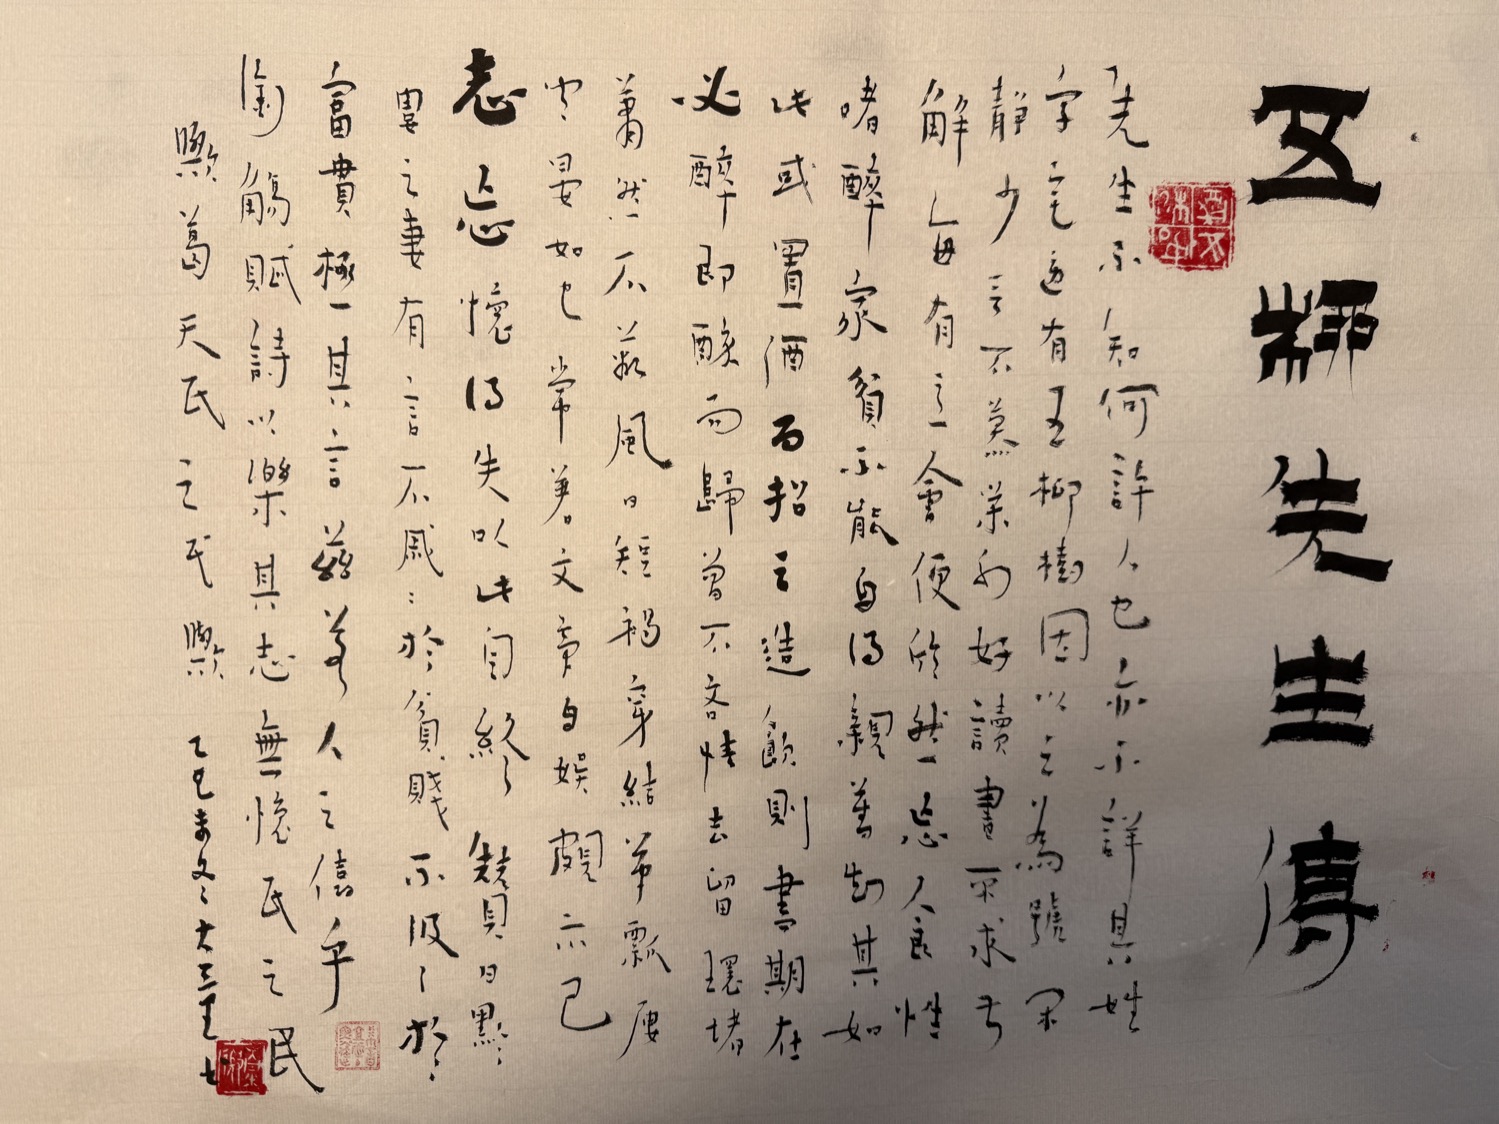 五柳先生傳
先生不知何許人也亦不詳其姓
字宅邊有五柳樹因以之為號閑
靜少言不慕榮利好讀書不求甚
解每有意會便欣然忘食性
嗜醉家貧不能自得親舊知其如
此或置酒而招之造飲則盡期在
必醉即醉而歸曾不吝情去留環堵
蕭然不蔽風日短褐穿結簞瓢屢
空晏如也常著文章自娛頗示己
志忘懷得失以此自終贊曰黔
婁之妻有言不戚々於貧賤不汲々於
富貴極其言茲若人之儔乎
銜觴賦詩以樂其志無懷氏之民
歟葛天氏之民歟 乙巳冬